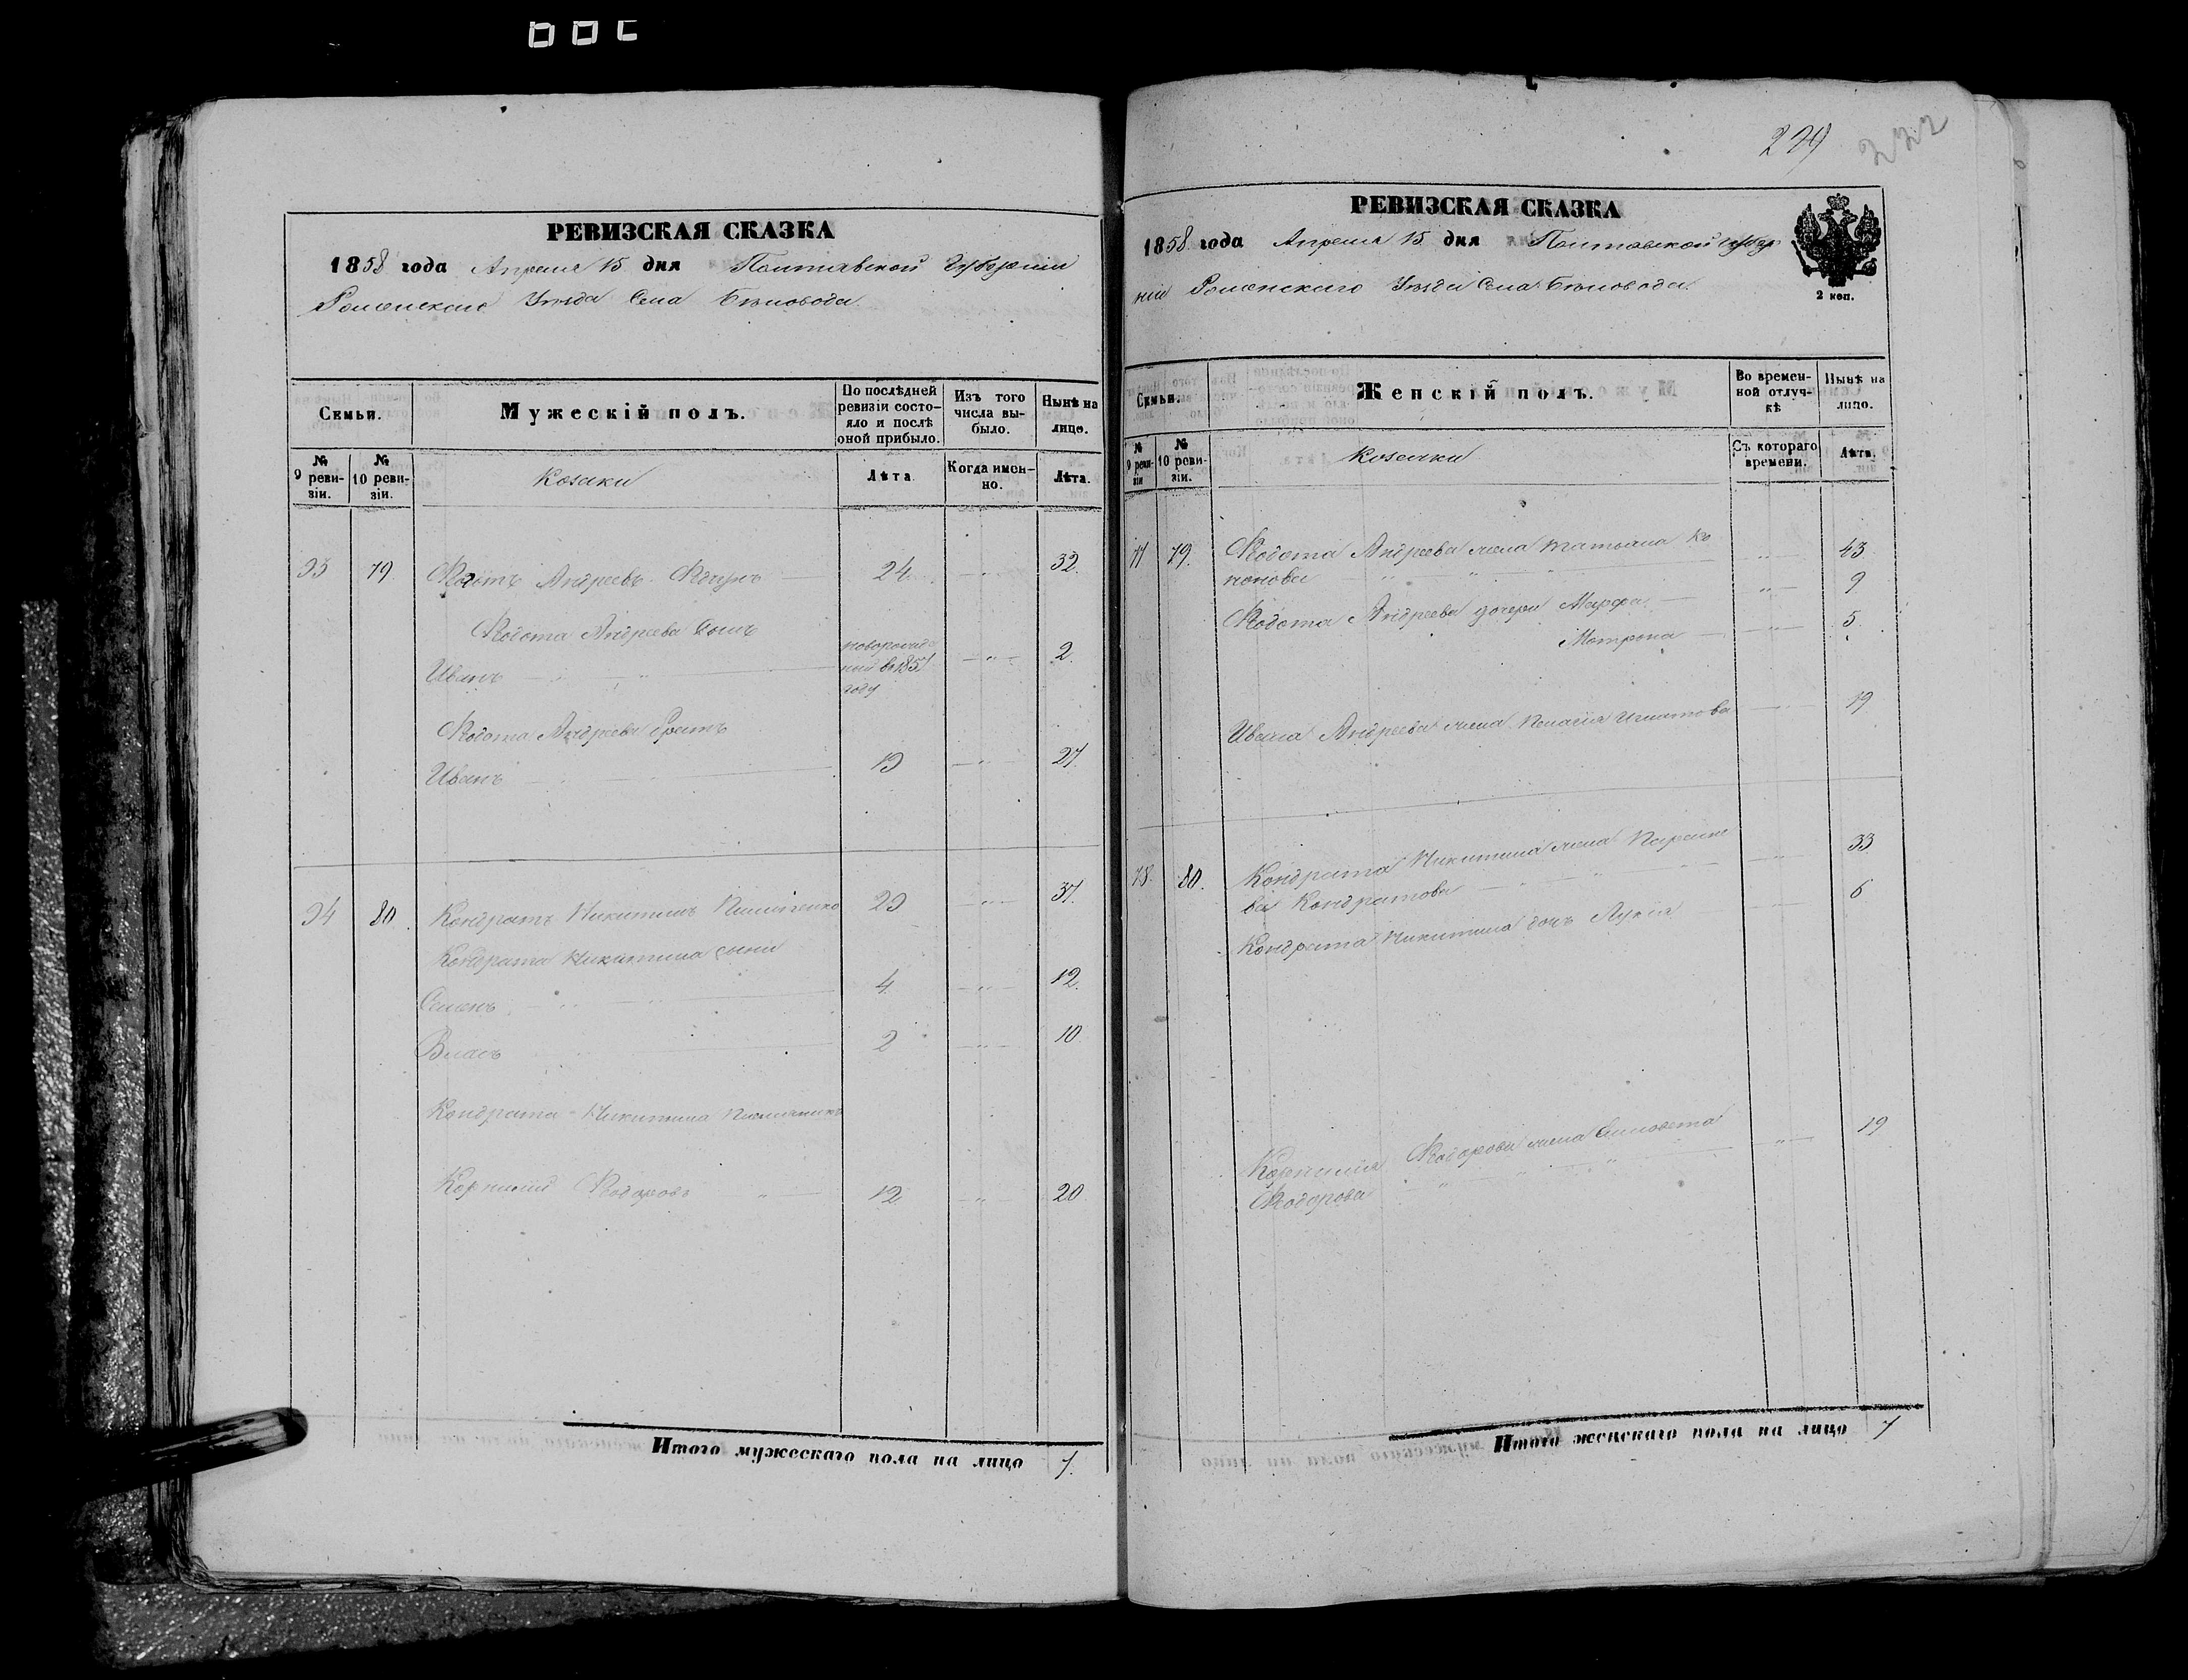 РЕВИЗСКАЯ СКАЗКА
1858 года Апреля 15 дня Полтавской Губерніи
Роменскаго Уѣзда Села Бѣловода.
Семьи.
Мужескій полъ.
По послѣдней ревизіи состояло и послѣ оной прибыло.
Изъ того числа выбыло.
Нынѣ на лицо.
№ 9 ревизіи.
№ 10 ревизіи.
Козаки
Лѣта
Когда именно.
Лѣта.
93 79 Андреевъ 24 32.
Федота Андреева сынъ
Иванъ новорожден
ный въ 1857 2.
году
Федота Андреева братъ
Иванъ 19 27.
94 80. Кондратъ Никитинъ 29 37.
Кондрата Никитина сыни
Семенъ 4. 12.
Власъ 2 10
Кондрата Никитина племянникъ
Корнилій Федоровъ 12. 20
Итого мужескаго пола на лицо 7.
279
222
РЕВИЗСКАЯ СКАЗКА
1858 года Апреля 15 дня Полтавской Губер
ніи Роменскаго Уѣзда Села Бѣловода.
2 коп.
Семьи.
Женскій полъ.
Во временной отлучкѣ
Нынѣ на лицо.
№ 9 ревизіи
№ 10 ревизіи.
Козачки
Съ котораго времени.
Лѣта.
77 79. Федота Андреева жена Татьяна 43
9
Федота Андреева дочери Марфа
Мотрона 5.
Ивана Андреева жена Пелагія Игнатова 19
78. 80. Кондрата Никитина жена Параске 33
ва Кондратова
Кондрата Никитина дочь Лукія 6
Корнилія Федорова жена 19
Федорова
Итого женскаго пола на лицо 7